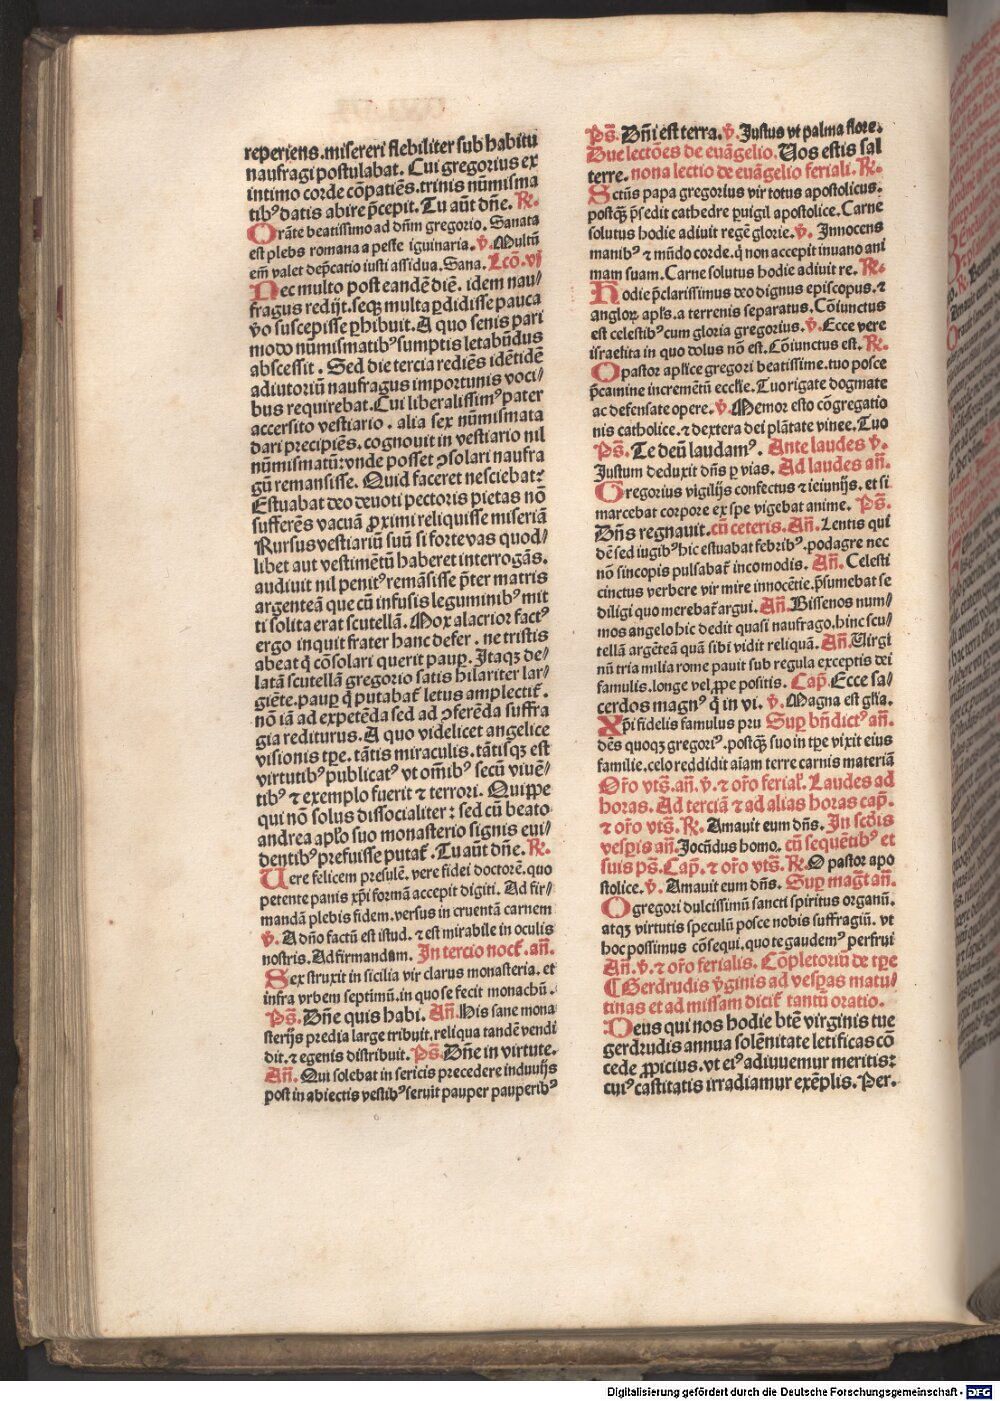 reperiens. misereri flebiliter sub habitu
naufragi postulabat. Cui gregorius ex
intimo corde cōpatiēs. trinis nūmisma
tibꝰ datis abire p̄cepit. Tu aūt dn̄e. R̄.
Orāte beatissimo ad dn̄m gregorio. Sanata
est plebs romana a peste iguinaria. v̄. Multū
em̄ valet dep̄catio iusti assidua. Sana. Lcō. vj
Nec multo post eandē diē. idem nau/
fragus redijt. seqꝫ multa ꝑdidisse pauca
v̄o suscepisse ꝑhibuit. A quo senis pari
modo nūmismatibꝰ sumptis letabūdus
abscessit. Sed die tercia rediēs idētidē
adiutoriū naufragus importunis voci/
bus requirebat. Cui liberalissimꝰ pater
accersito vestiario. alia sex nūmismata
dari precipiēs. cognouit in vestiario nil
nūmismatū: vnde posset ꝯsolari naufra
gū remansisse. Quid faceret nesciebat:
Estuabat deo deuoti pectoris pietas nō
sufferēs vacuā ꝓximi reliquisse miseriā
Rursus vestiariū suū si forte vas quod/
libet aut vestimētū haberet interrogās.
audiuit nil penitꝰ remāsisse p̄ter matris
argenteā que cū infusis leguminibꝰ mit
ti solita erat scutellā. Mox alacrior factꝰ
ergo inquit frater hanc defer. ne tristis
abeat q̄ cōsolari querit pauꝑ. Itaqꝫ de/
latā scutellā gregorio satis hilariter lar/
giēte. pauꝑ q̄ putabat̄ letus amplectit̄.
nō iā ad expetēda sed ad ꝯferēda suffra
gia rediturus. A quo videlicet angelice
visionis tꝑe. tātis miraculis. tātisqꝫ est
virtutibꝰ publicatꝰ vt om̄ibꝰ secū viuē/
tibꝰ ⁊ exemplo fuerit ⁊ terrori. Quippe
qui nō solus dissocialiter: sed cū beato
andrea apl̄o suo monasterio signis eui/
dentibꝰ prefuisse putat̄. Tu aūt dn̄e. R̄.
Uere felicem presulē. vere fidei doctorē. quo
petente panis xp̄i formā accepit digiti. Ad fir/
mandā plebis fidem. versus in cruentā carnem
v̄. A dn̄o factū est istud. ⁊ est mirabile in oculis
nostris. Ad firmandam. In tercio noct̄. añ.
Sex struxit in sicilia vir clarus monasteria. et
infra vrbem septimū. in quo se fecit monachū.
Ps̄. Dn̄e quis habi. Añ. His sane mona
sterijs predia large tribuit. reliqua tandē vendi
dit. ⁊ egenis distribuit. Ps̄. Dn̄e in virtute.
Añ. Qui solebat in sericis precedere induuijs
post in abiectis vestibꝰ seruit pauper pauperibꝰ
Ps̄. Dn̄i est terra. v̄. Justus vt palma flore.
Due lectōes de euāgelio. Uos estis sal
terre. nona lectio de euāgelio feriali. R̄.
Sctūs papa gregorius vir totus apostolicus.
postqꝫ p̄sedit cathedre ꝑuigil apostolice. Carne
solutus hodie adiuit regē glorie. v̄. Innocens
manibꝰ ⁊ mūdo corde. q̄ non accepit inuano ani
mam suam. Carne solutus hodie adiuit re. R̄.
Hodie p̄clarissimus deo dignus episcopus. ⁊
angloꝝ apl̄s. a terrenis separatus. Cōiunctus
est celestibꝰ cum gloria gregorius. v̄. Ecce vere
israelita in quo dolus nō est. Cōiunctus est. R̄.
O pastor apl̄ice gregori beatissime. tuo posce
p̄camine incremētū eccl̄ie. Tuo rigate dogmate
ac defensate opere. v̄. Memor esto cōgregatio
nis catholice. ⁊ dextera dei plātate vinee. Tuo
Ps̄. Te deū laudamꝰ. Ante laudes v̄.
Justum deduxit dn̄s ꝑ vias. Ad laudes añ.
Gregorius vigilijs confectus ⁊ ieiunijs. et si
marcebat corpore ex spe vigebat anime. Ps̄.
Dn̄s regnauit. cū ceteris. Añ. Lentis qui
dē sed iugibꝰ hic estuabat febribꝰ. podagre nec
nō sincopis pulsabat̄ incomodis. Añ. Celesti
cinctus verbere vir mire innocētie. p̄sumebat se
diligi quo merebat̄ argui. Añ. Bissenos num/
mos angelo hic dedit quasi naufrago. hinc scu/
tellā argēteā quā sibi vidit reliquā. Añ. Uirgi
nū tria milia rome pauit sub regula exceptis dei
famulis. longe vel ꝓpe positis. Cap̄. Ecce sa/
cerdos magnꝰ q̄ in vi. v̄. Magna est gl̄ia.
Xp̄i fidelis famulus pru Suꝑ bn̄dictꝰ añ.
dēs quoqꝫ gregoriꝰ. postqꝫ suo in tꝑe vixit eius
familie. celo reddidit aīam terre carnis materiā
Or̄o vts̄. añ. v̄. ⁊ or̄o ferial̄. Laudes ad
horas. Ad terciā ⁊ ad alias horas cap̄.
⁊ or̄o vts̄. R̄. Amauit eum dn̄s. In scd̄is
vesꝑis añ. Jocūdus homo. cū sequētibꝰ et
suis ps̄. Cap̄. ⁊ or̄o vts̄. R̄. O pastor apo
stolice. v̄. Amauit eum dn̄s. Suꝑ magt̄ añ.
O gregori dulcissimū sancti spiritus organū.
atqꝫ virtutis speculū posce nobis suffragiū. vt
hoc possimus cōsequi, quo te gaudemꝰ perfrui
Añ. v̄. ⁊ or̄o ferialis. Cōpletoriū de tꝑe
¶ Gerdrudis v̄ginis ad vesꝑas matu/
tinas et ad missam dicit̄ tantū oratio.
Deus qui nos hodie btē virginis tue
gerdrudis annua solēnitate letificas cō
cede ꝓpicius. vt eiꝰ adiuuemur meritis:
cuiꝰ castitatis irradiamur exēplis. Per.
Digitalisierung gefördert durch die Deutsche Forschungsgemeinschaft - DFG